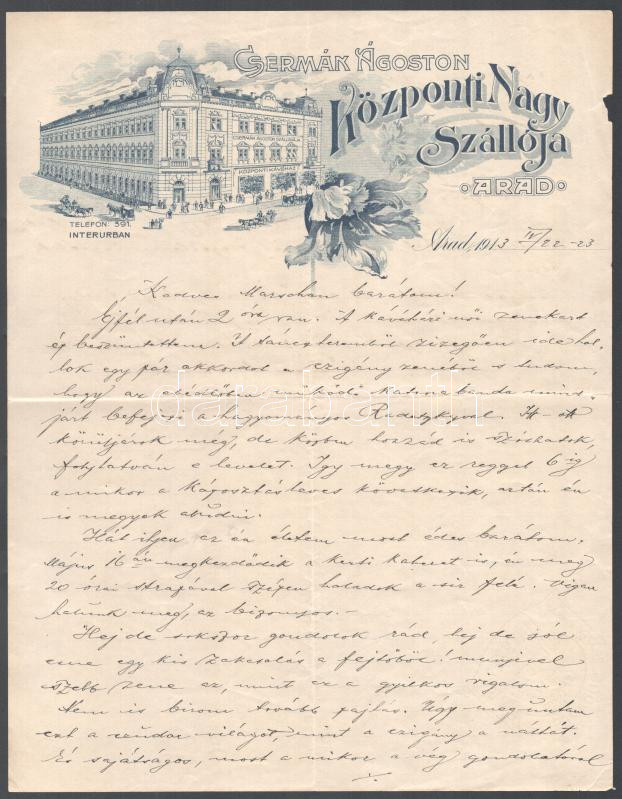 CSERMÁK ÁGOSTON
Központi Nagy
Szállója
ARAD
CSERMÁK ÁGOSTON SZÁLLODÁJA
KÖZPONTI KÁVÉHÁZ
TELEFON: 391.
INTERURBAN
Arad, 1913 IV/22-23
Kedves Marschan barátom!
Éjfél után 2 óra van. A kávéházi női zenekart
ép beszüntettem. A táncteremből zizegően ide hal-
lok egy pár akkordot a czigány zenéből s tudom,
hogy az ebédlőben működő katonabanda mind-
járt befejezi a hagyományos Radetzkyval. Itt-ott
körütjárok még, de közben hozzád is szóchatok,
folytatván e levelet. Igy megy ez reggel 6-ig
a mikor a káposztásleves következik, aztán én
is megyek aludni.
Hát ilyen az én életem most édes barátom.
Május 16-án megkezdődik a kerti kabaret is, én meg
20 órai strapával szépen haladok a sir felé. Vigan
halunk meg, az bizonyos.-
Hej de sokszor gondolok rád, hej de jól
esne egy kis zakatolás a fejtőből! mennyivel
szebb zene ez, mint ez a gyilkos vigalom.
Nem is birom tovább pajtás. Úgy meguntam
ezt a világot, mint a czigány a nótát.
És sajátságos, most a mikor a vég gondolatával
darabanth